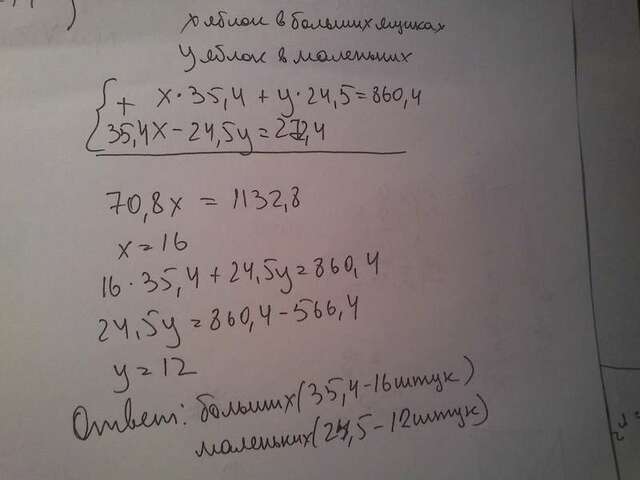 х яблок в больших ящиках
у яблок в маленьких
+ х·35,4 + у·24,5=860,4
35,4х – 24,5у=272,4
70,8х = 1132,8
х=16
16·35,4+24,5у=860,4
24,5у=860,4–566,4
у=12
Ответ: больших(35,4–16штук)
маленьких(24,5–12штук)